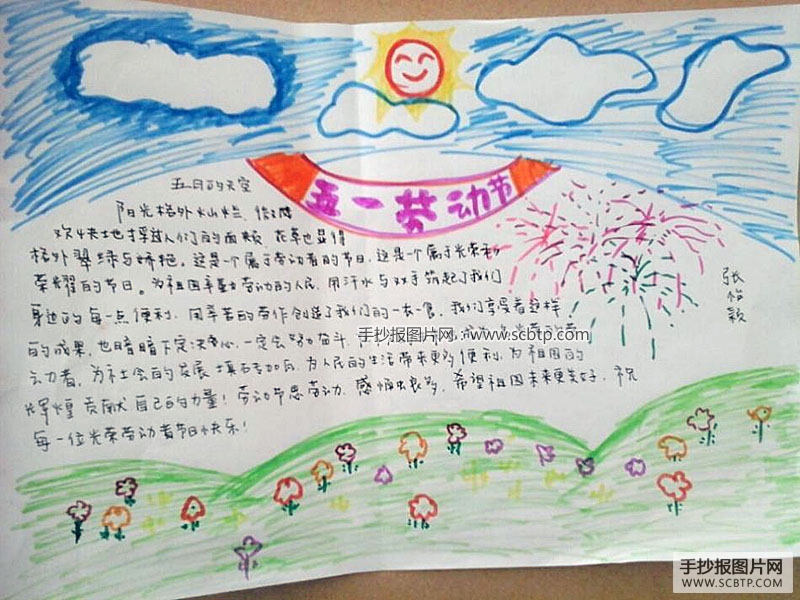 五一劳动节
五月的天空
阳光格外灿烂
欢快地拂过人们的面颊，花草也显得
格外翠绿与娇艳。这是个属于劳动者的节日，这是个属于光荣和
荣耀的节日。为祖国辛勤劳动的人民，用汗水与双手筑起了我们
身边的每一点便利，用辛苦的劳作创造了我们的一衣一食。我们享受着这样
的成果，也暗暗下定决心，一定会努力奋斗
动者，为社会的发展填石加瓦，为人民的生活带来更多便利，为祖国的
辉煌贡献自己的力量！劳动节思劳动，感悟良多，希望祖国未来更美好，祝
每一位光荣劳动者节日快乐！
张怡颖
手抄报图片网 www.scbtp.com
手抄报图片网
WWW.SCBTP.COM